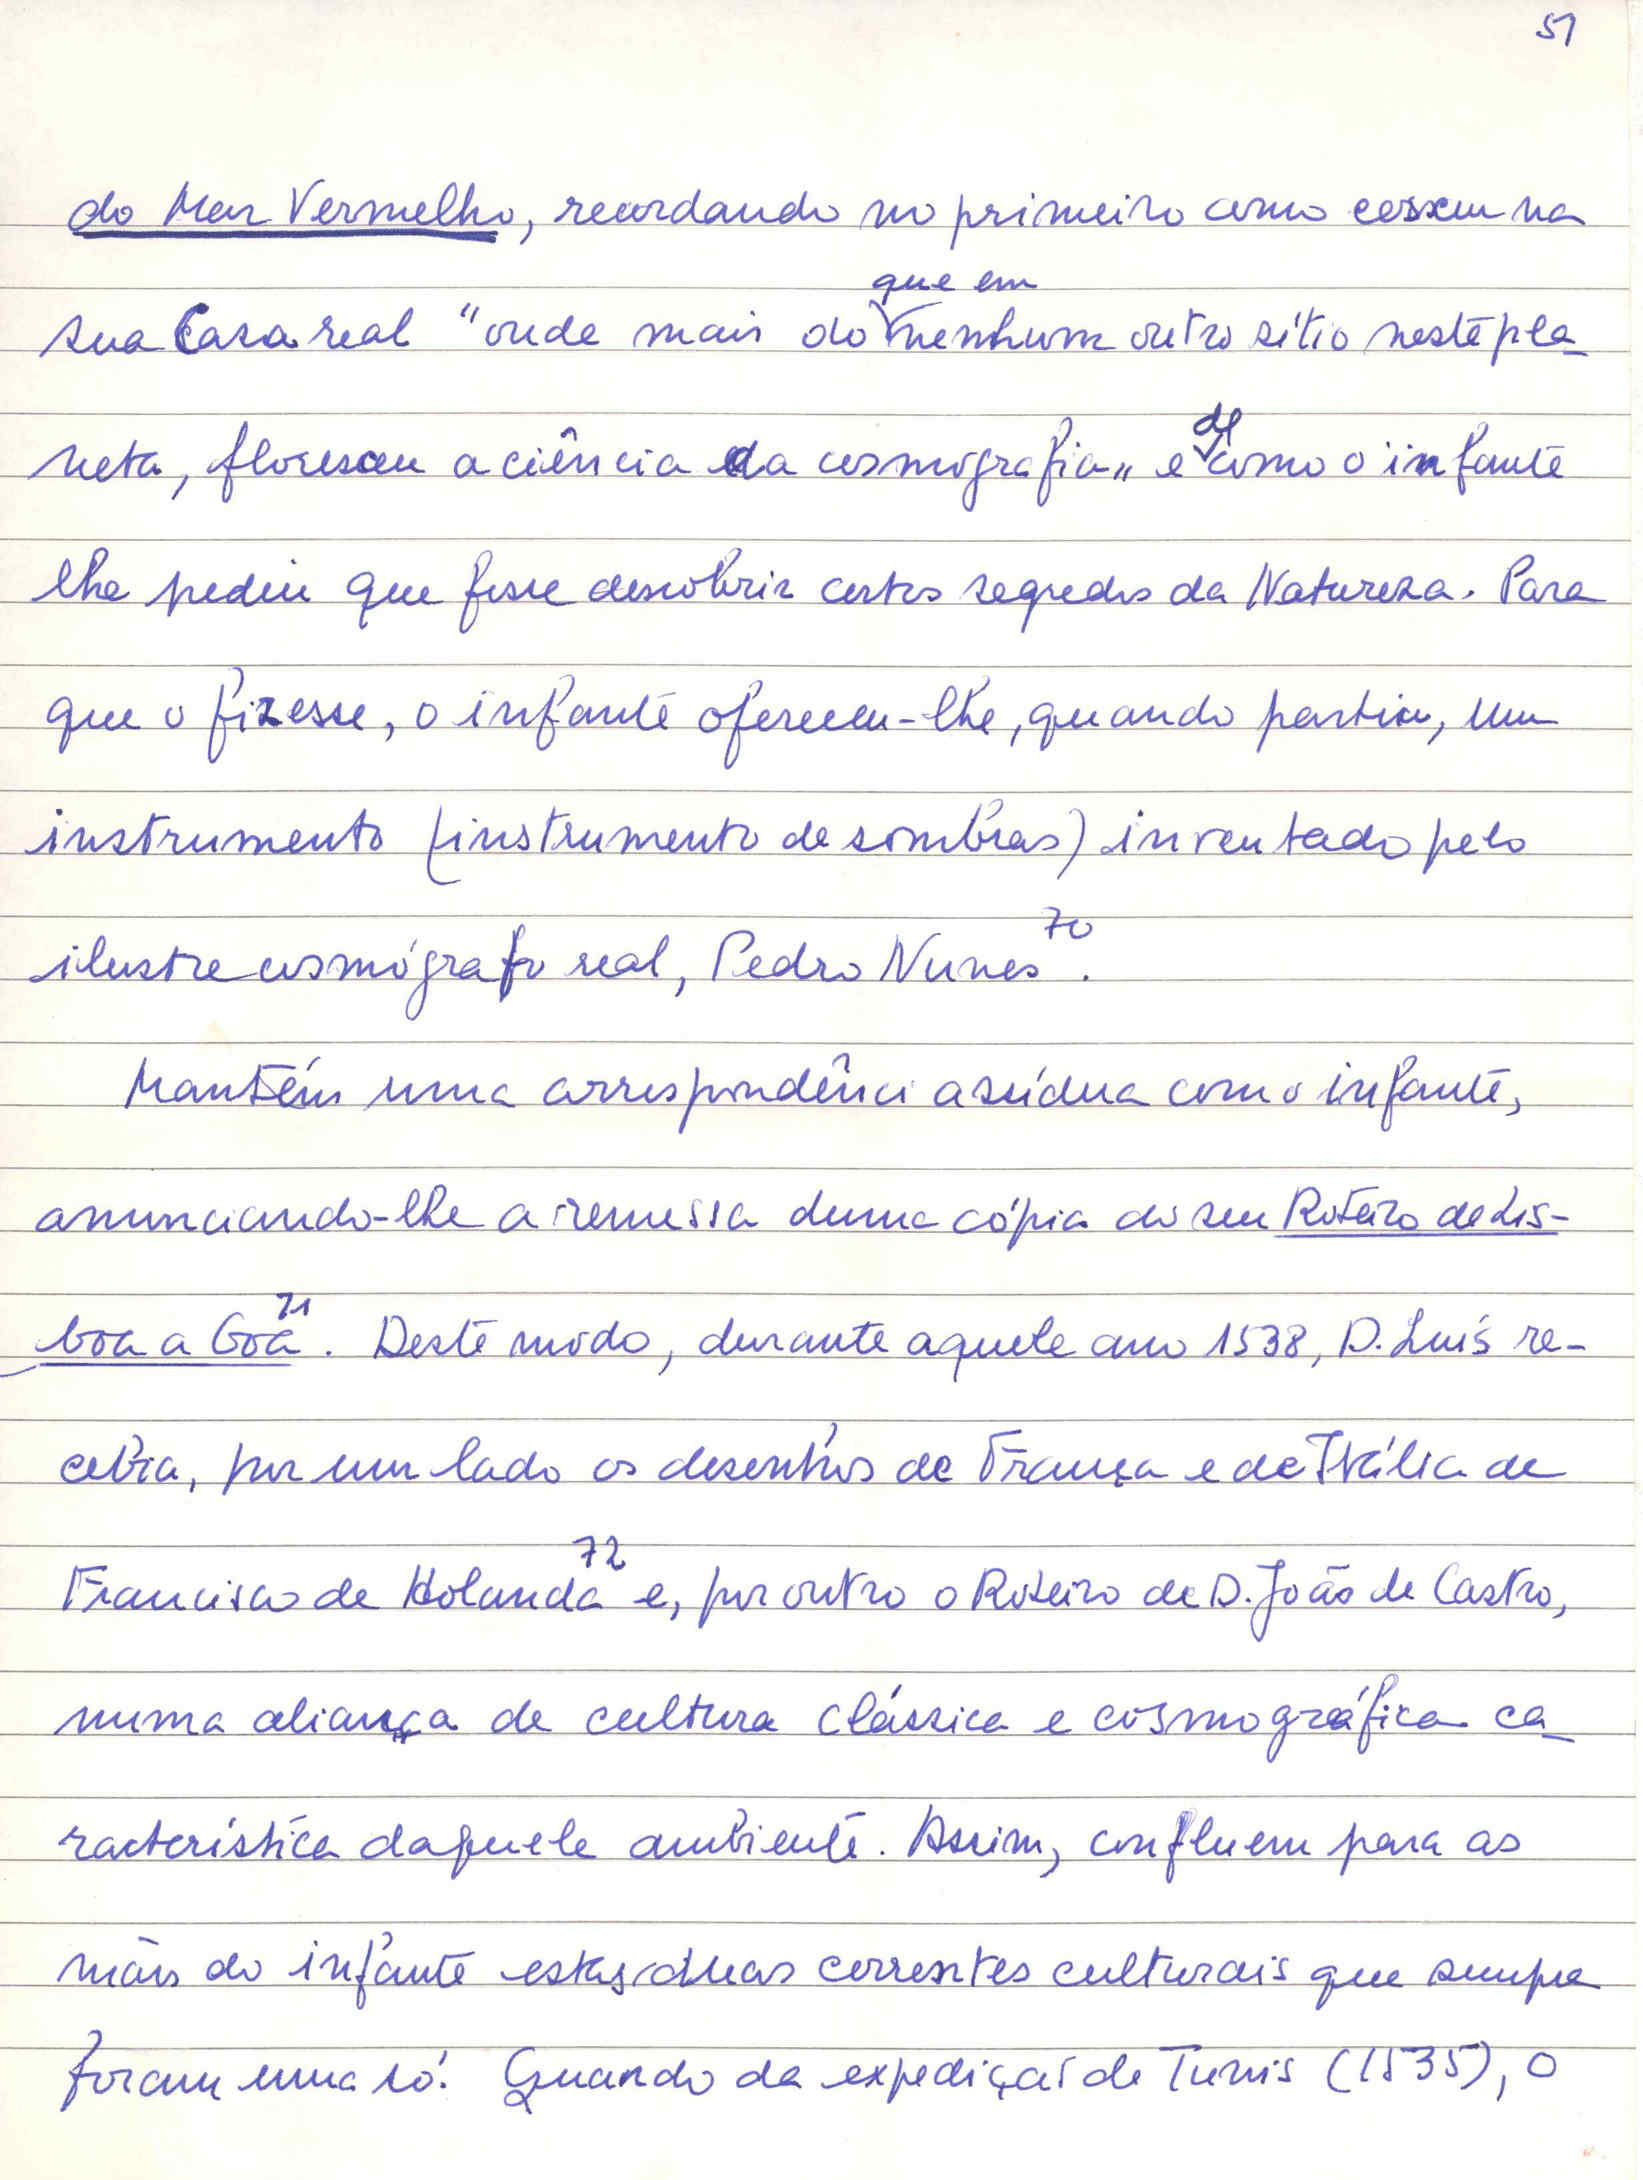 51
do Mar Vermelho, recordando no primeiro como cursou na
que em
sua Casa real "onde mais do nenhum outro sítio neste pla-
de
neta, floresceu a ciência da cosmografia" e como o infante
lhe pediu que fosse descobrir certos segredos da Natureza. Para
que o fizesse, o infante ofereceu-lhe, quando partiu, um
instrumento (instrumento de sombras) inventado pelo
70
ilustre cosmógrafo real, Pedro Nunes.
Mantém uma correspondênci assídua com o infante,
anunciando-lhe a remessa duma cópia do seu Roteiro de Lis-
71
boa a Goa. Deste modo, durante aquele ano 1538, D. Luís re-
cebia, por um lado os desenhos de França e de Itália de
72
Francisco de Holanda e, por outro o Roteiro de D. João de Castro,
numa aliança de cultura clássica e cosmográfica ca-
racterística daquele ambiente. Assim, confluem para as
mãos do infante estas duas correntes culturais que sempre
foram uma só. Quando da expedição de Tunis (1535), o